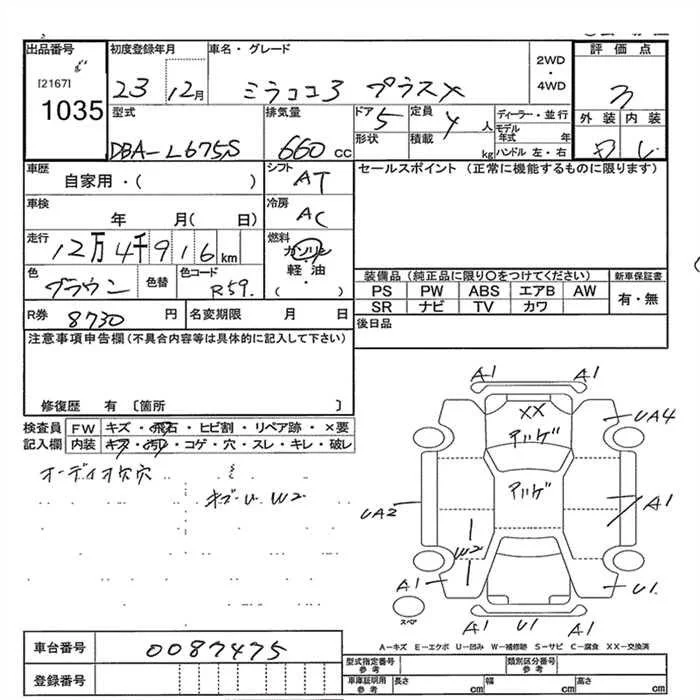 出品番号 初度登録年月 車名・グレード 2WD・4WD 評価点
[2167] 23 12月 ミラココア プラスX 3
1035
型式 排気量 ドア 5 定員 4人 ディーラー・並行 外装 内装
モデル年式 年
DBA-L675S 660cc 形状 積載 kg ハンドル 左・右
車歴 シフト AT セールスポイント (正常に機能するものに限ります)
自家用・( )
車検 冷房 AC
年 月( 日)
走行 燃料
12万4千916km ガソリン・軽油・( )
色 ブラウン 色替 色コード R59. 装備品 (純正品に限り○をつけてください) 新車保証書
PS PW ABS エアB AW 有・無
R券 8730 円 名変期限 月 日 SR ナビ TV カワ
注意事項申告欄(不具合内容等は具体的に記入して下さい) 後日品
修復歴 有 〔箇所 〕
検査員 FW キズ・飛石・ヒビ割・リペア跡・×要
記入欄 内装 キズ・汚レ・コゲ・穴・スレ・キレ・破レ
オーディオ欠穴
W2
A1 A1
XX UA4
アリゲ
アリゲ
A1
UA2
W2
A1 U1
スペア
A1 U1 A1
A-キズ E-エクボ U-凹み W-補修跡 S-サビ C-腐食 XX-交換済
車台番号 0087475
登録番号
型式指定番号 参考 類別区分番号 参考
車庫証明用 参考 長さ cm 幅 cm 高さ cm